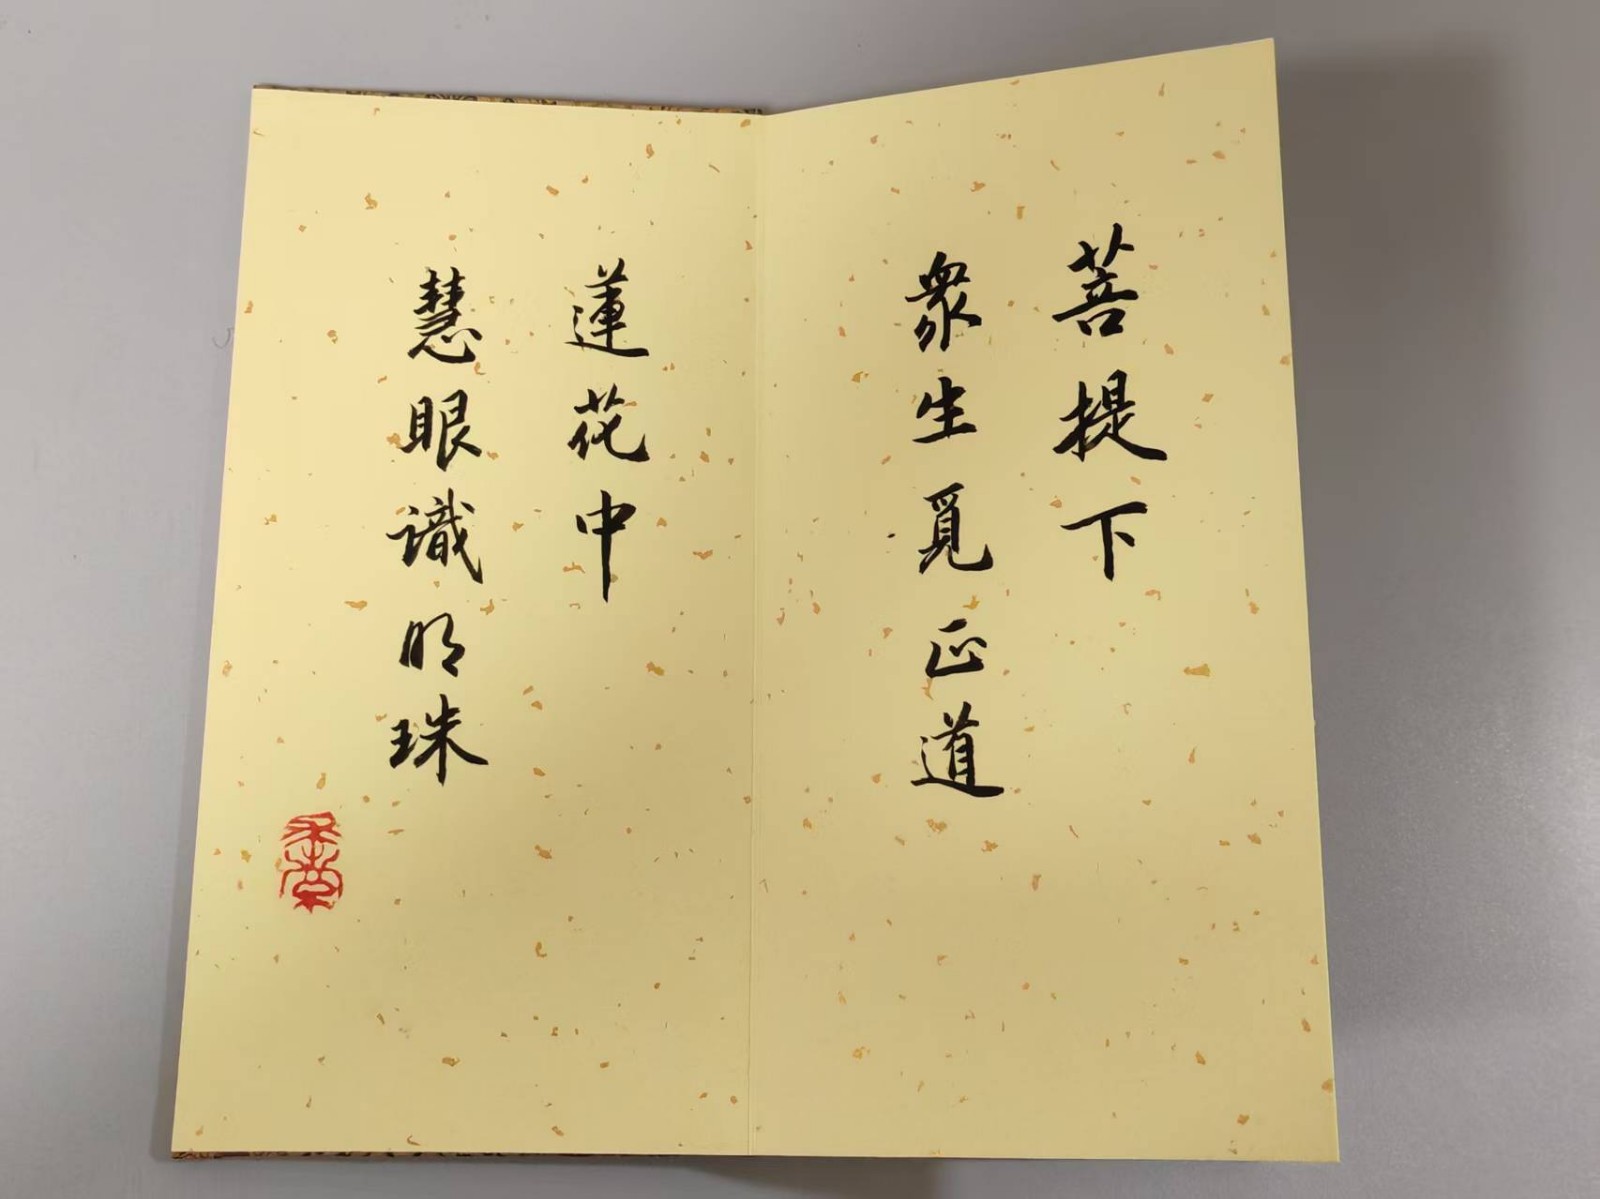 菩提下
衆生覓正道
蓮花中
慧眼識明珠